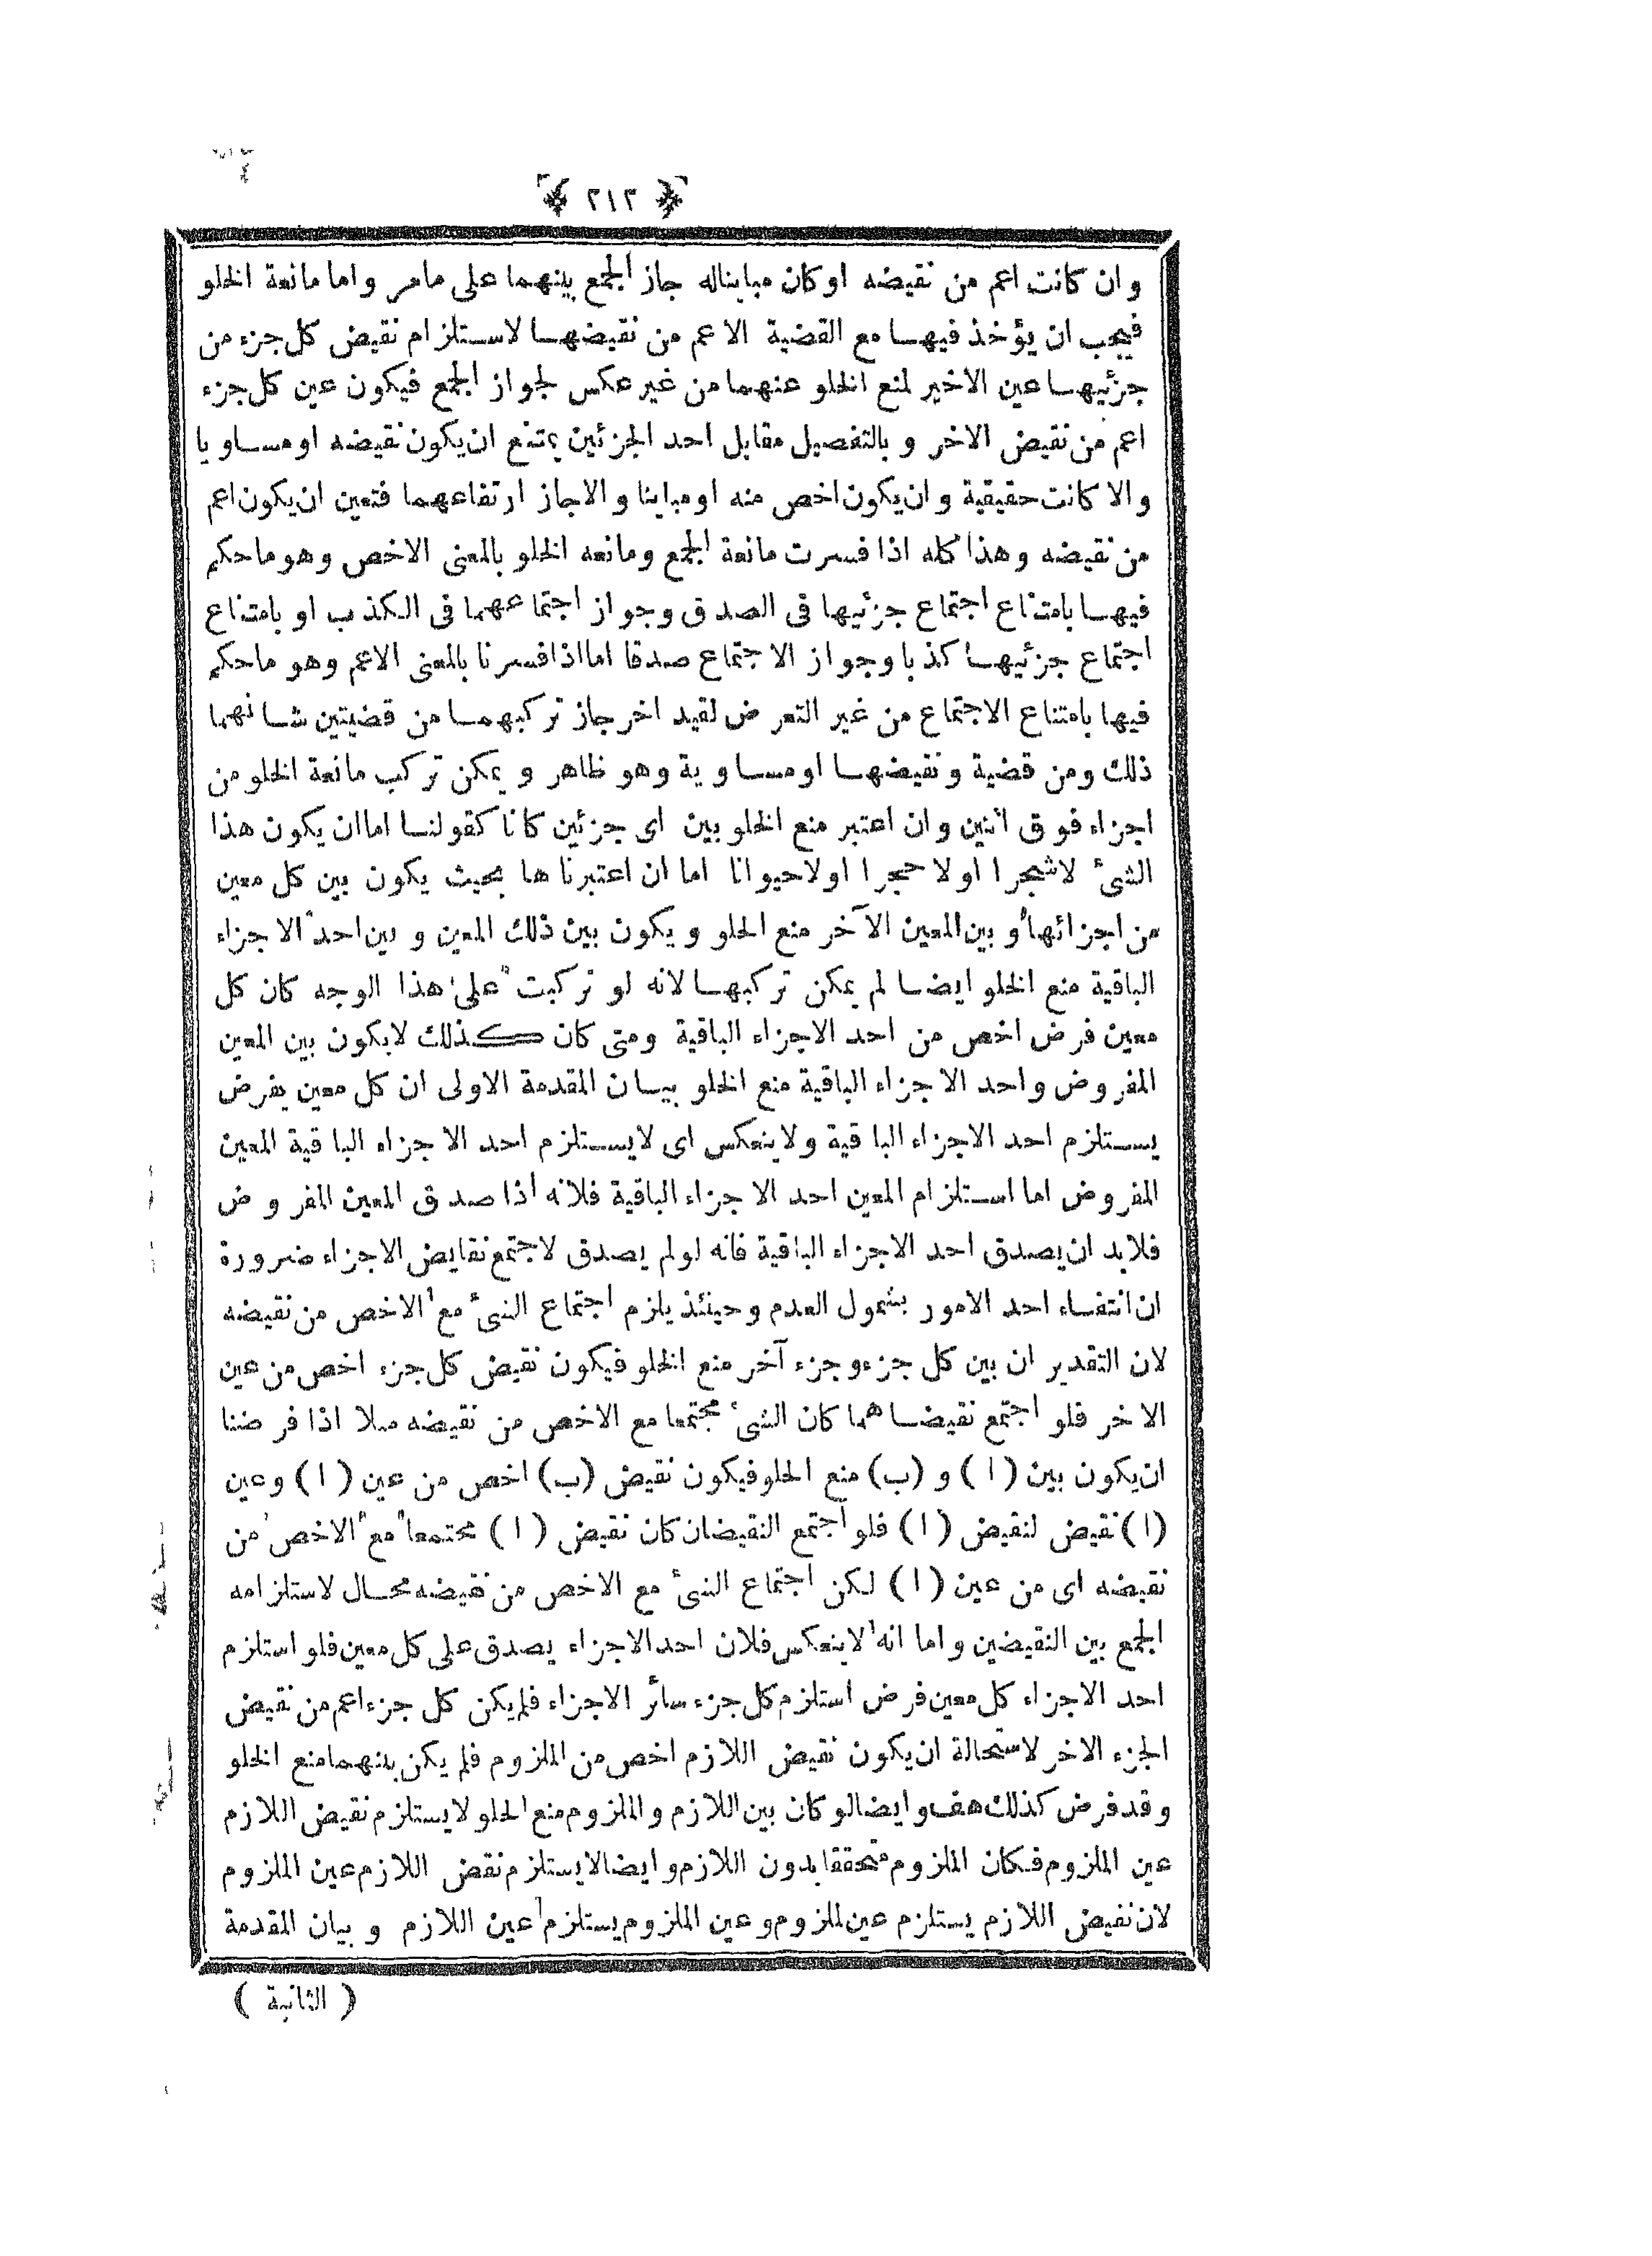 ﴿ ٢١٢ ﴾
وان كانت اعم من نقيضه اوكان مبايناله جاز الجمع بينهما على مامر واما مانعة الخلو
فيجب ان يؤخذ فيهـا مع القضية الاعم من نقيضهـا لاستلزام نقيض كل جزء من
جزئيهـا عين الاخير لمنع الخلو عنهما من غير عكس لجواز الجمع فيكون عين كل جزء
اعم من نقيض الاخر و بالتفصيل مقابل احد الجزئين يمتنع ان يكون نقيضه او مساويا
والا كانت حقيقية وان يكون اخص منه او مباينا والاجاز ارتفاعهما فتعين ان يكون اعم
من نقيضه وهذا كله اذا فسرت مانعة الجمع ومانعه الخلو بالمعنى الاخص وهو ما حكم
فيهـا بامتناع اجتماع جزئيها فى الصدق وجواز اجتماعهما فى الكذب او بامتناع
اجتماع جزئيهـا كذبا وجواز الاجتماع صدقا اما اذا فسرنا بالمعنى الاعم وهو ما حكم
فيها بامتناع الاجتماع من غير التعرض لقيد اخر جاز تركبهمـا من قضيتين شانهما
ذلك ومن قضية ونقيضهـا او مساوية وهو ظاهر و يمكن تركب مانعة الخلو من
اجزاء فوق اثنين وان اعتبر منع الخلو بين اى جزئين كانا كقولنـا اماان يكون هذا
الشئ لاشجرا اولا حجرا اولاحيوانا اما ان اعتبرناها بحيث يكون بين كل معين
من اجزائها و بين المعين الآخر منع الخلو و يكون بين ذلك المعين و بين احد الاجزاء
الباقية منع الخلو ايضـا لم يمكن تركبهـا لانه لو تركبت على هذا الوجه كان كل
معين فرض اخص من احد الاجزاء الباقية ومتى كان كذلك لايكون بين المعين
المفروض واحد الاجزاء الباقية منع الخلو بيـان المقدمة الاولى ان كل معين يفرض
يستلزم احد الاجزاء الباقية ولاينعكس اى لايستلزم احد الاجزاء الباقية المعين
المفروض اما استلزام المعين احد الاجزاء الباقية فلانه اذا صدق المعين المفروض
فلابد ان يصدق احد الاجزاء الباقية فانه لولم يصدق لاجتمع نقايض الاجزاء ضرورة
ان انتفـاء احد الامور بشمول العدم وحينئذ يلزم اجتماع الشئ مع الاخص من نقيضه
لان التقدير ان بين كل جزء وجزء آخر منع الخلو فيكون نقيض كل جزء اخص من عين
الاخر فلو اجتمع نقيضـاهما كان الشئ مجتمعا مع الاخص من نقيضه مثلا اذا فرضنا
ان يكون بين ( ا ) و (ب) منع الخلو فيكون نقيض (ب) اخص من عين ( ا ) وعين
( ا ) نقيض لنقيض ( ا ) فلو اجتمع النقيضان كان نقيض ( ا ) مجتمعا مع الاخص من
نقيضه اى من عين ( ا ) لكن اجتماع الشئ مع الاخص من نقيضه محـال لاستلزامه
الجمع بين النقيضين واما انه لاينعكس فلان احد الاجزاء يصدق على كل معين فلو استلزم
احد الاجزاء كل معين فرض استلزم كل جزء سائر الاجزاء فلم يكن كل جزء اعم من نقيض
الجزء الاخر لاستحالة ان يكون نقيض اللازم اخص من الملزوم فلم يكن بينهما منع الخلو
وقد فرض كذلك هف وايضا لو كان بين اللازم والملزوم منع الخلو لايستلزم نقيض اللازم
عين الملزوم فكان الملزوم متحققا بدون اللازم وايضا لايستلزم نقض اللازم عين الملزوم
لان نقيض اللازم يستلزم عين لملزوم وعين الملزوم يستلزم عين اللازم و بيان المقدمة
( الثانية )